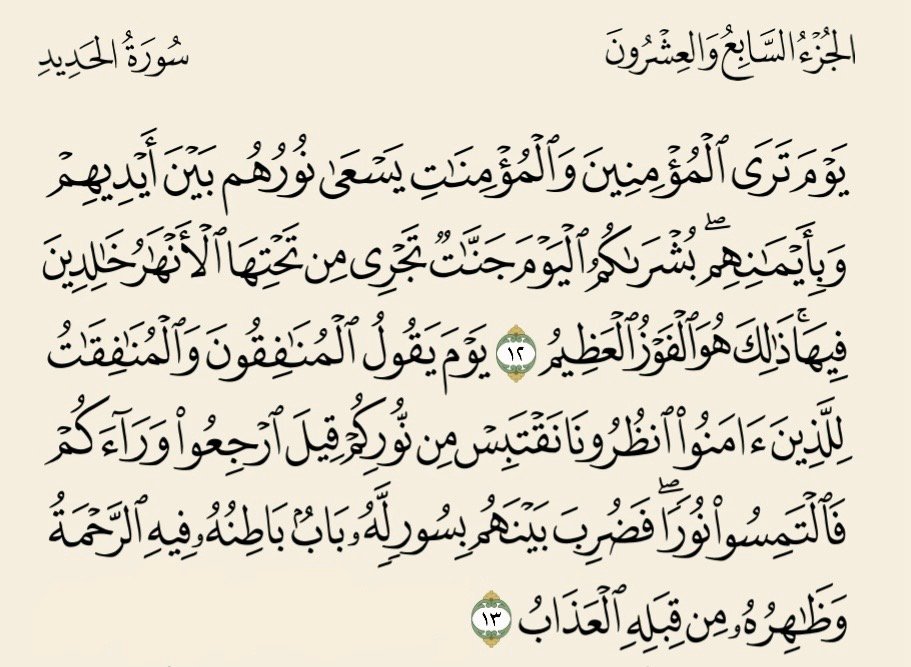 الجُزْءُ السَّابِعُ وَالعِشْرُونَ سُورَةُ الحَدِيدِ
يَوْمَ تَرَى ٱلْمُؤْمِنِينَ وَٱلْمُؤْمِنَٰتِ يَسْعَىٰ نُورُهُم بَيْنَ أَيْدِيهِمْ
وَبِأَيْمَٰنِهِمۖ بُشْرَىٰكُمُ ٱلْيَوْمَ جَنَّٰتٌ تَجْرِى مِن تَحْتِهَا ٱلْأَنْهَٰرُ خَٰلِدِينَ
فِيهَاۚ ذَٰلِكَ هُوَ ٱلْفَوْزُ ٱلْعَظِيمُ ١٢ يَوْمَ يَقُولُ ٱلْمُنَٰفِقُونَ وَٱلْمُنَٰفِقَٰتُ
لِلَّذِينَ ءَامَنُوا۟ ٱنظُرُونَا نَقْتَبِسْ مِن نُّورِكُمْ قِيلَ ٱرْجِعُوا۟ وَرَآءَكُمْ
فَٱلْتَمِسُوا۟ نُورًاۖ فَضُرِبَ بَيْنَهُم بِسُورٍ لَّهُۥ بَابٌۢ بَاطِنُهُۥ فِيهِ ٱلرَّحْمَةُ
وَظَٰهِرُهُۥ مِن قِبَلِهِ ٱلْعَذَابُ ١٣